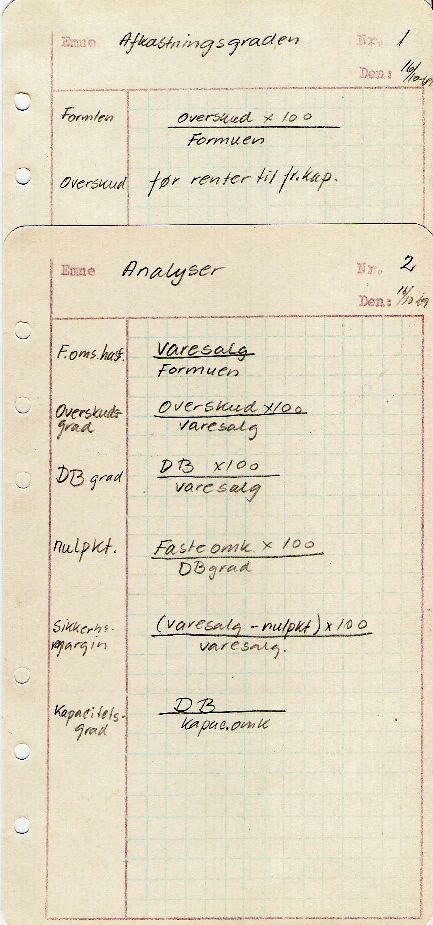 Emne Afkastningsgraden Nr. 1
Den: 16/10-69
Formlen overskud x 100
Formuen
Overskud før renter til fr.kap.
Emne Analyser Nr. 2
Den: 16/10-69
F.oms.hast. Varesalg
Formuen
Overskuds- Overskud x100
grad varesalg
DB grad DB x100
varesalg
nulpkt. Faste omk. x 100
DBgrad
Sikkerhs- (varesalg - nulpkt) x 100
margin varesalg.
Kapacitets- DB
grad Kapac.omk